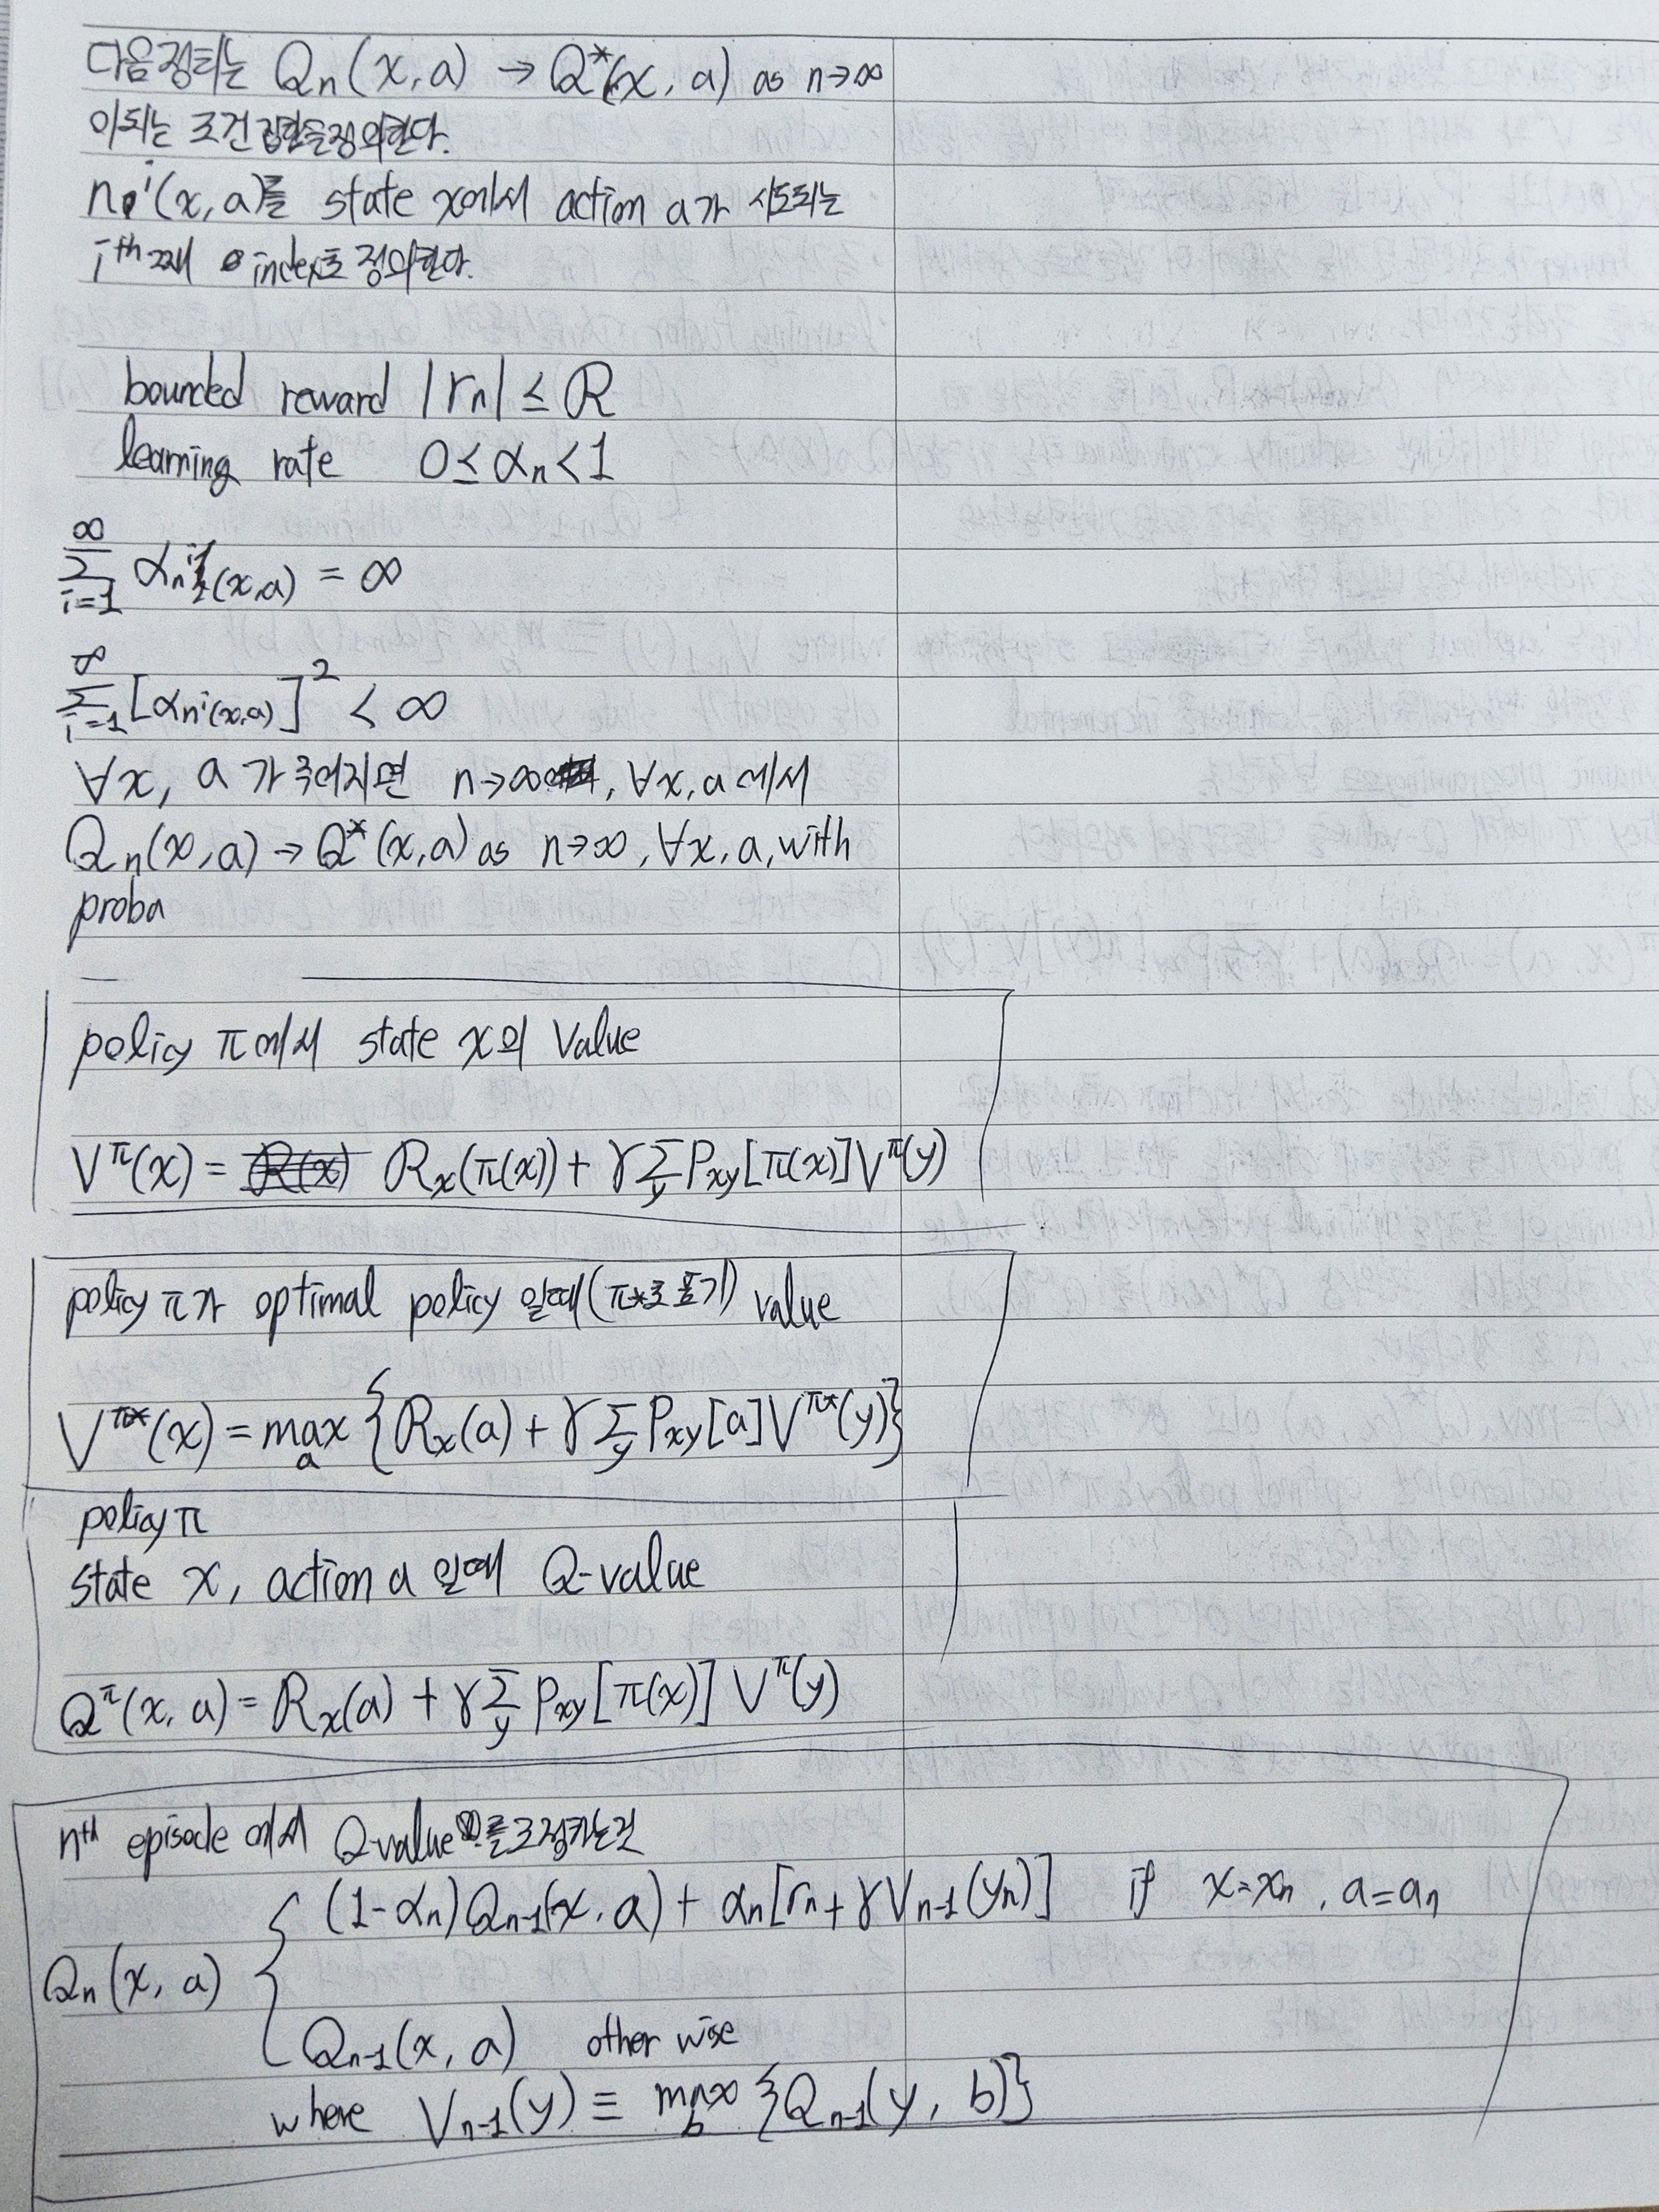 다음 정리는 Qn(x,a) → Q*(x,a) as n→∞
이되는 조건 집합을 정의한다.
nⁱ(x,a)를 state x에서 action a가 시도되는
iᵗʰ째 index로 정의한다.
bounded reward |rn| ≤ R
learning rate 0 ≤ αn < 1
∑_{i=1}^{∞} α_{nⁱ(x,a)} = ∞
∑_{i=1}^{∞} [α_{nⁱ(x,a)}]² < ∞
∀x, a가 주어지면 n→∞, ∀x, a에서
Qn(x,a) → Q*(x,a) as n→∞, ∀x, a, with
proba
policy π에서 state x의 Value
V^π(x) = R_x(π(x)) + γ∑_y P_xy[π(x)]V^π(y)
policy π가 optimal policy 일때(π*로 표기) value
V^π*(x) = max_a {R_x(a) + γ∑_y P_xy[a]V^π*(y)}
policy π
state x, action a 일때 Q-value
Q^π(x, a) = R_x(a) + γ∑_y P_xy[π(x)] V^π(y)
nth episode에서 Q-value를 조정하는것
(1-αn)Qn-1(x, a) + αn[rn + γVn-1(yn)] if x=xn, a=an
Qn(x, a) {
Qn-1(x, a) other wise
where Vn-1(y) ≡ max_b {Qn-1(y, b)}